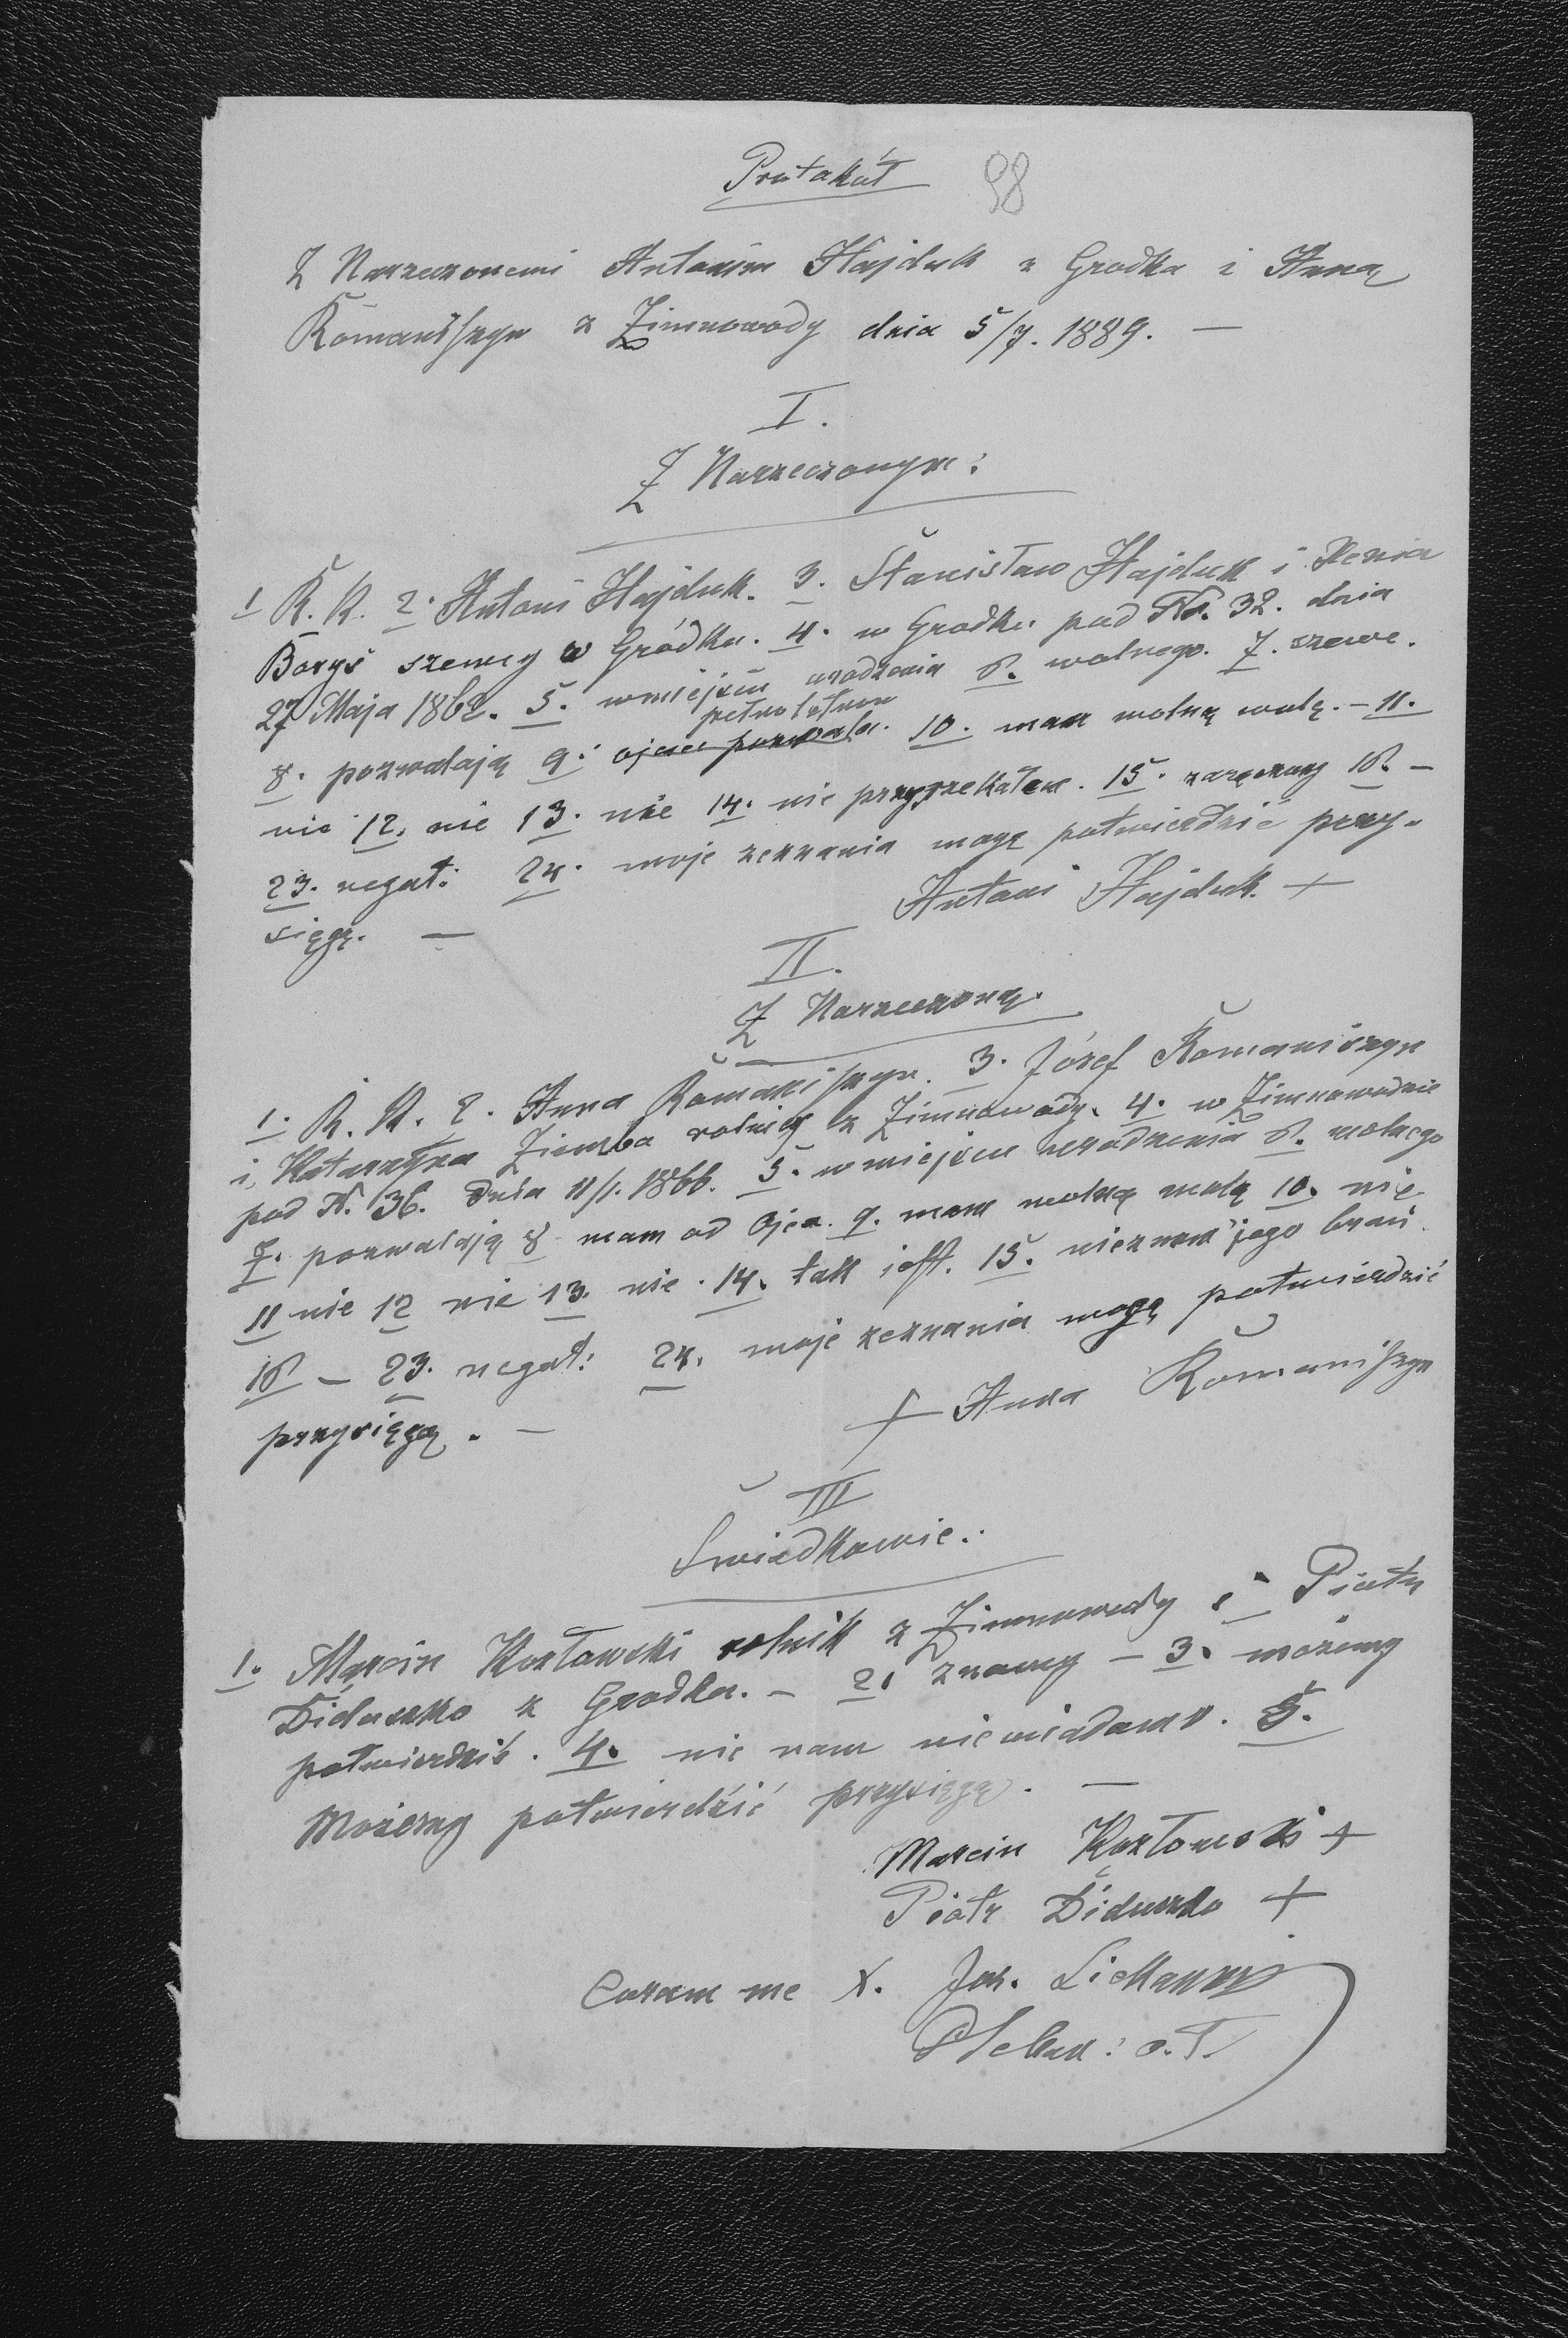 Protokół 98
Z Narzeczonemi Antonim Hajduk z Gródka i Anną
Romaniszyn z Zimnowody dnia 5/7. 1889. —
I.
Z Narzeczonym:
1 R. K. 2. Antoni Hajduk. 3. Stanisław Hajduk i Xenia
Boryś szewcy w Gródku. 4. w Gródku pod No. 32. dnia
27 Maja 1862. 5. w miejscu urodzenia 6. wolnego. 7. szewc.
pełnoletnom
8. pozwalają 9. ojciec pozwala. 10. mam wolną wolę. – 11.
nie 12. nie 13. nie 14. nie przyrzekałem. 15. zaręczony 16. –
23. negat: 24. moje zeznania mogę potwierdzić przy-
sięgą. —
Antoni Hajduk. +
II.
Z Narzeczoną.
1. R. K. 2. Anna Romaniszyn. 3. Józef Romaniszyn
i Katarzyna Ziemba rolnicy z Zimnowody. 4. w Zimnowodzie
pod N. 36. dnia 11/1. 1866. 5. w miejscu urodzenia 6. wolnego
7. pozwalają 8 mam od Ojca. 9. mam wolną wolę 10. nie
11 nie 12 nie 13. nie. 14. tak jest. 15. nieznam jego braci
16 – 23. negat: 24. moje zeznania mogę potwierdzić
przysięgą. –
+ Anna Romaniszyn
III
Świadkowie:
1. Marcin Kozłowski rolnik z Zimnowody i Piotr
Diduszko z Gródka. – 2. znamy – 3. możemy
potwierdzić. 4. nic nam niewiadomo. 5.
Możemy potwierdzić przysięgą. —
Marcin Kozłowski +
Piotr Diduszko +
Coram me X. Jos.
Pleban: o. T.